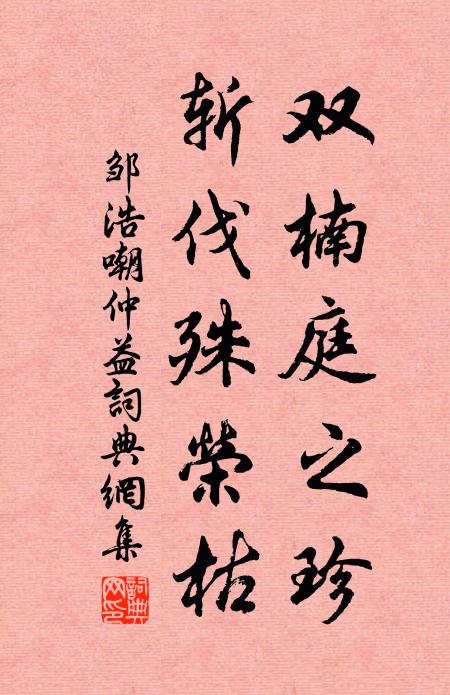 双楠庭之珍
斩伐殊荣枯
邹浩嘲仲益詞典網集
詞典网印